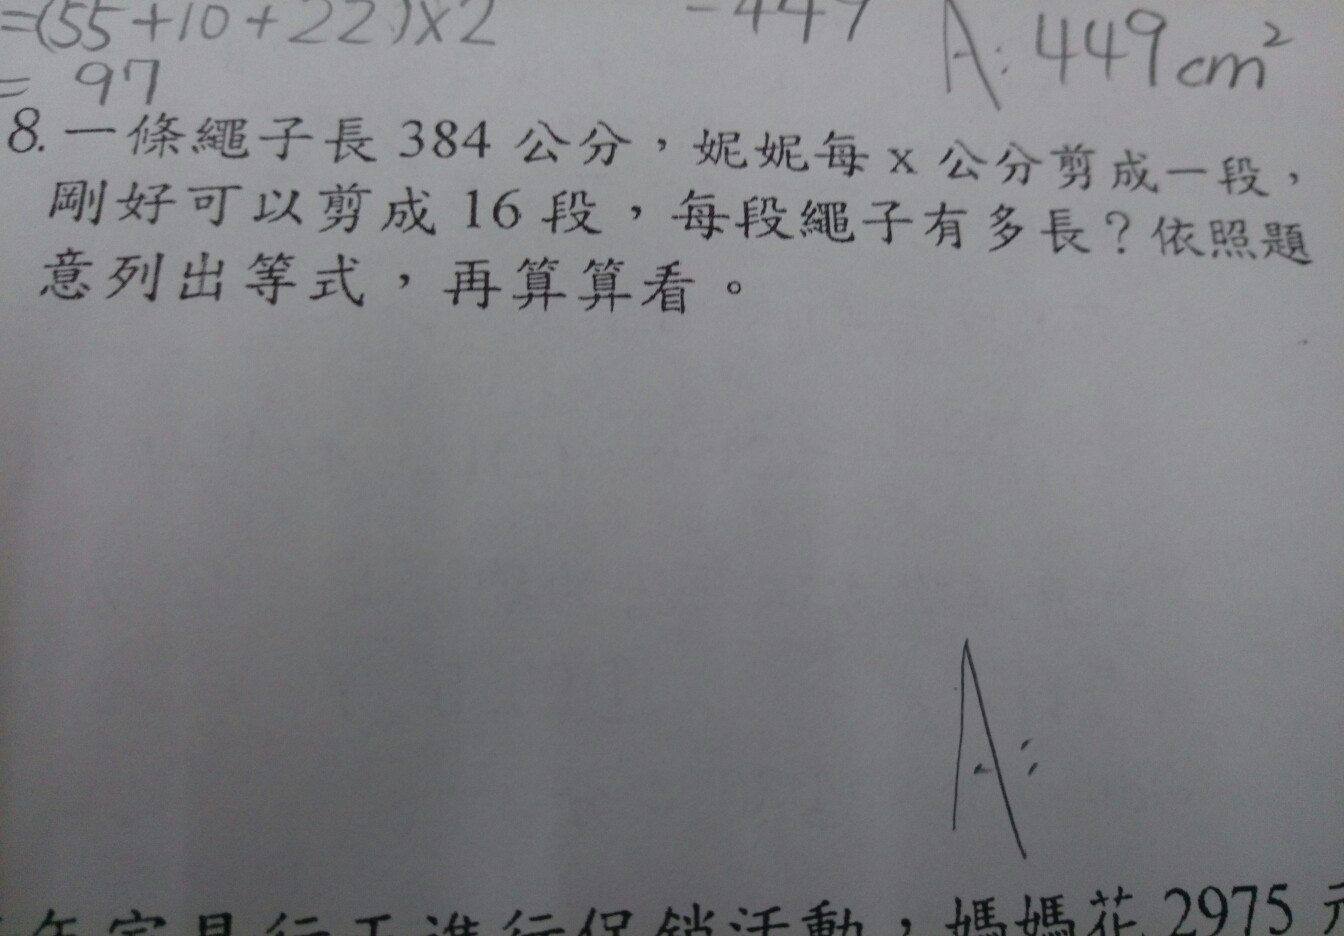 =(55+10+22)×2 -449 A: 449cm²
= 97
8. 一條繩子長 384 公分，妮妮每 x 公分剪成一段，
剛好可以剪成 16 段，每段繩子有多長？依照題
意列出等式，再算算看。
A:
進行促銷活動，媽媽花 2975 元